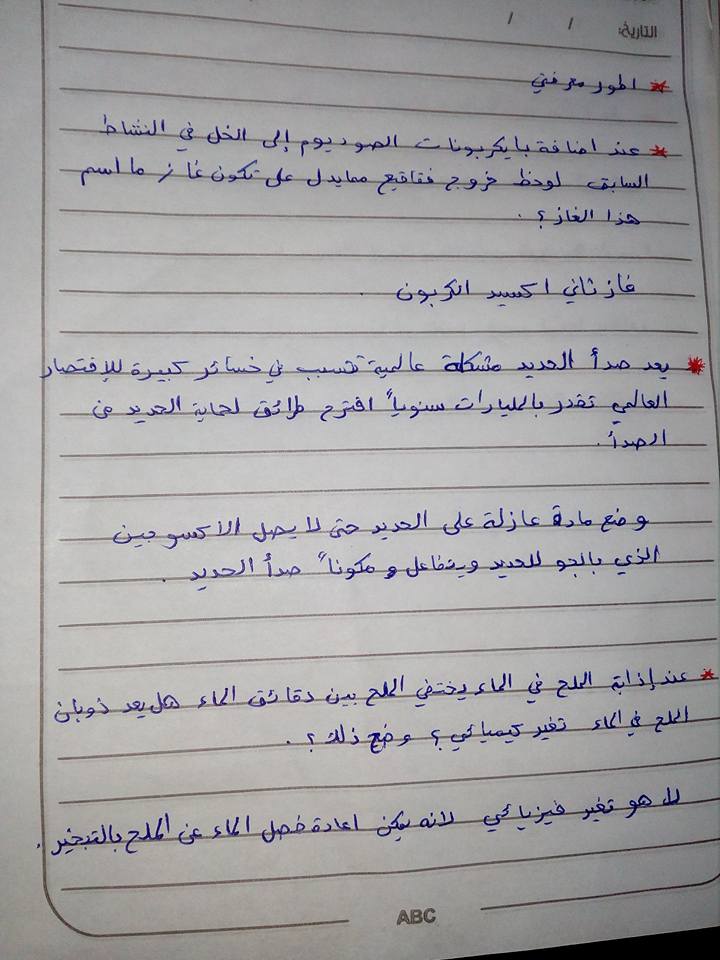 التاريخ: / /
* اطور معرفتي
* عند اضافة بايكربونات الصوديوم إلى الخل في النشاط
السابق لوحظ خروج فقاقيع ممايدل على تكون غاز ما اسم
هذا الغاز؟.
غاز ثاني اكسيد الكربون.
* يعد صدأ الحديد مشكلة عالمية تتسبب في خسائر كبيرة للإقتصاد
العالمي تقدر بالمليارات سنوياً اقترح طرائق لحماية الحديد من
الصدأ.
وضع مادة عازلة على الحديد حتى لا يصل الاكسوجين
الذي بالجو للحديد ويتفاعل و مكوناً صدأ الحديد.
* عند إذابة الملح في الماء يختفي الملح بين دقائق الماء هل يعد ذوبان
الملح في الماء تغير كيميائي؟ وضح ذلك؟.
لا هو تغير فيزيائي لانه يمكن اعادة فصل الماء عن الملح بالتبخير.
ABC